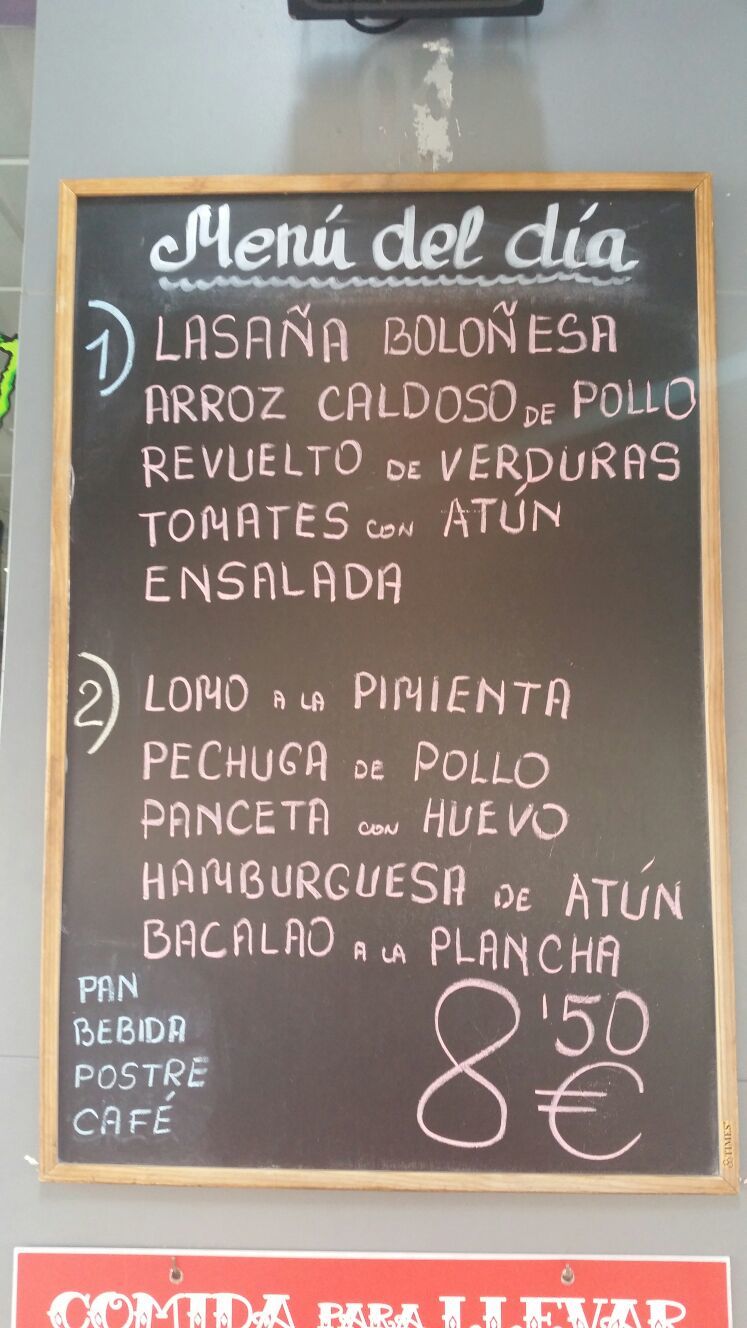 Menú del día
1) LASAÑA BOLOÑESA
ARROZ CALDOSO DE POLLO
REVUELTO DE VERDURAS
TOMATES CON ATÚN
ENSALADA
2) LOMO A LA PIMIENTA
PECHUGA DE POLLO
PANCETA CON HUEVO
HAMBURGUESA DE ATÚN
BACALAO A LA PLANCHA
PAN
BEBIDA
POSTRE
CAFÉ
8'50 €
TIMES
COMIDA PARA LLEVAR